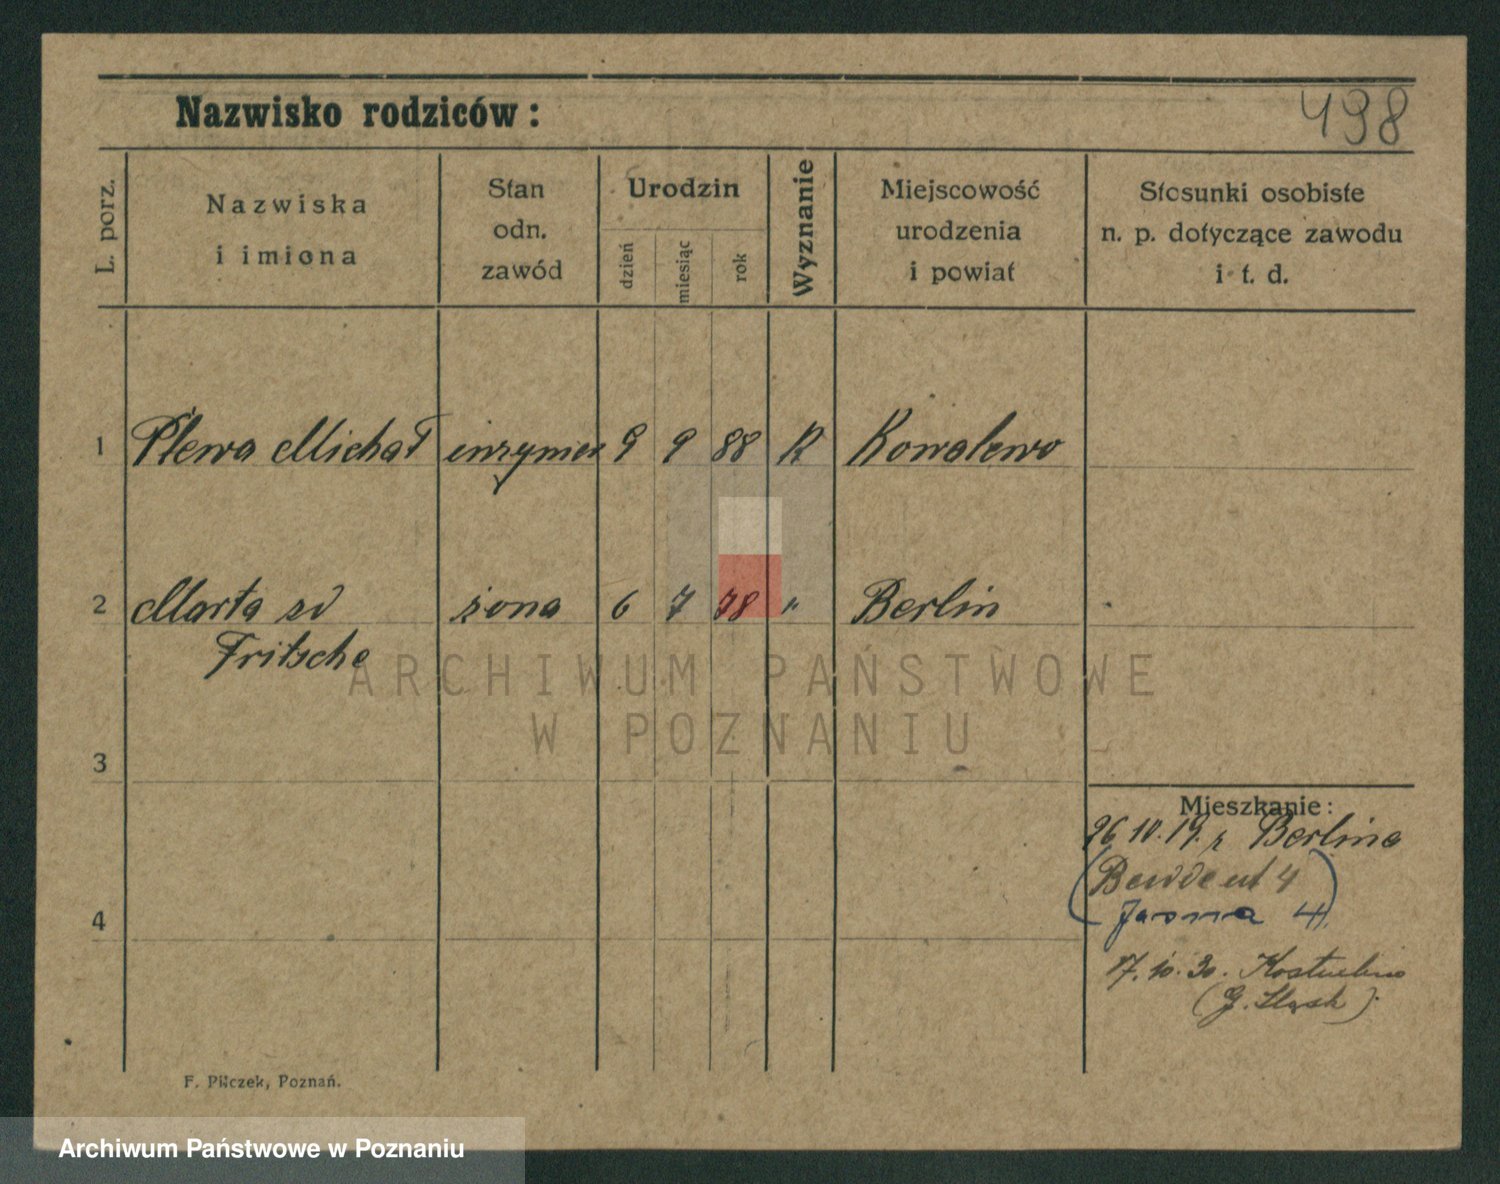 Nazwisko rodziców:
498
L. porz.
Nazwiska
i imiona
Stan
odn.
zawód
Urodzin
dzień
miesiąc
rok
Wyznanie
Miejscowość
urodzenia
i powiat
Stosunki osobiste
n. p. dotyczące zawodu
i t. d.
1 Plewa Michał inżynier 9 9 88 K Kowalewo
2 Marta zd żona 6 7 78 " Berlin
Fritsche
ARCHIWUM PAŃSTWOWE
W POZNANIU
3
4
Mieszkanie:
26 10. 19. z Berlina
4
Jasna 4
17. 10. 30.
(G. Śląsk).
F. Pilczek, Poznań.
Archiwum Państwowe w Poznaniu